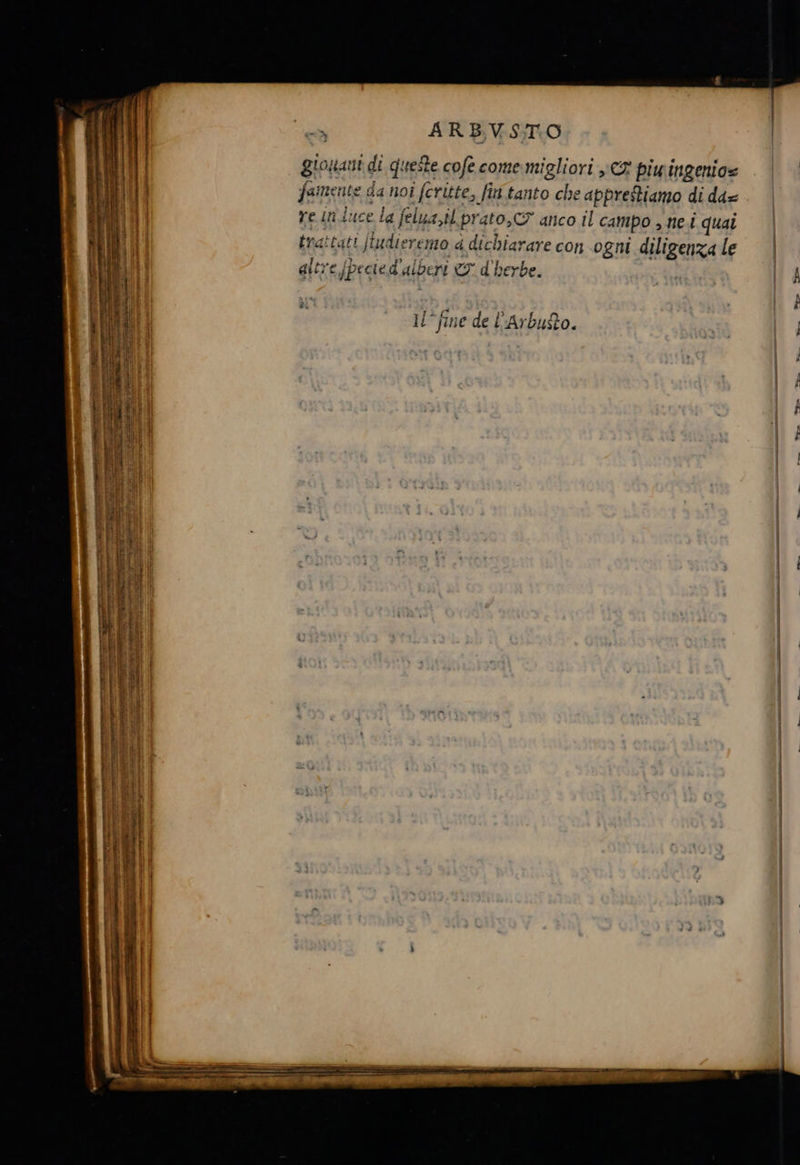 ARBVSTO
giouani di queſte coſe come migliori, & piu ingenio=
ſamente da noi ſcritte, fin tanto che appreſtiamo di da=
re in luce la ſelua, il prato, & anco il campo, ne i quai
trattati ſtudieremo à dichiarare con ogni diligenza le
altre ſpecie d'alberi & d'herbe.
Il fine de l'Arbuſto.